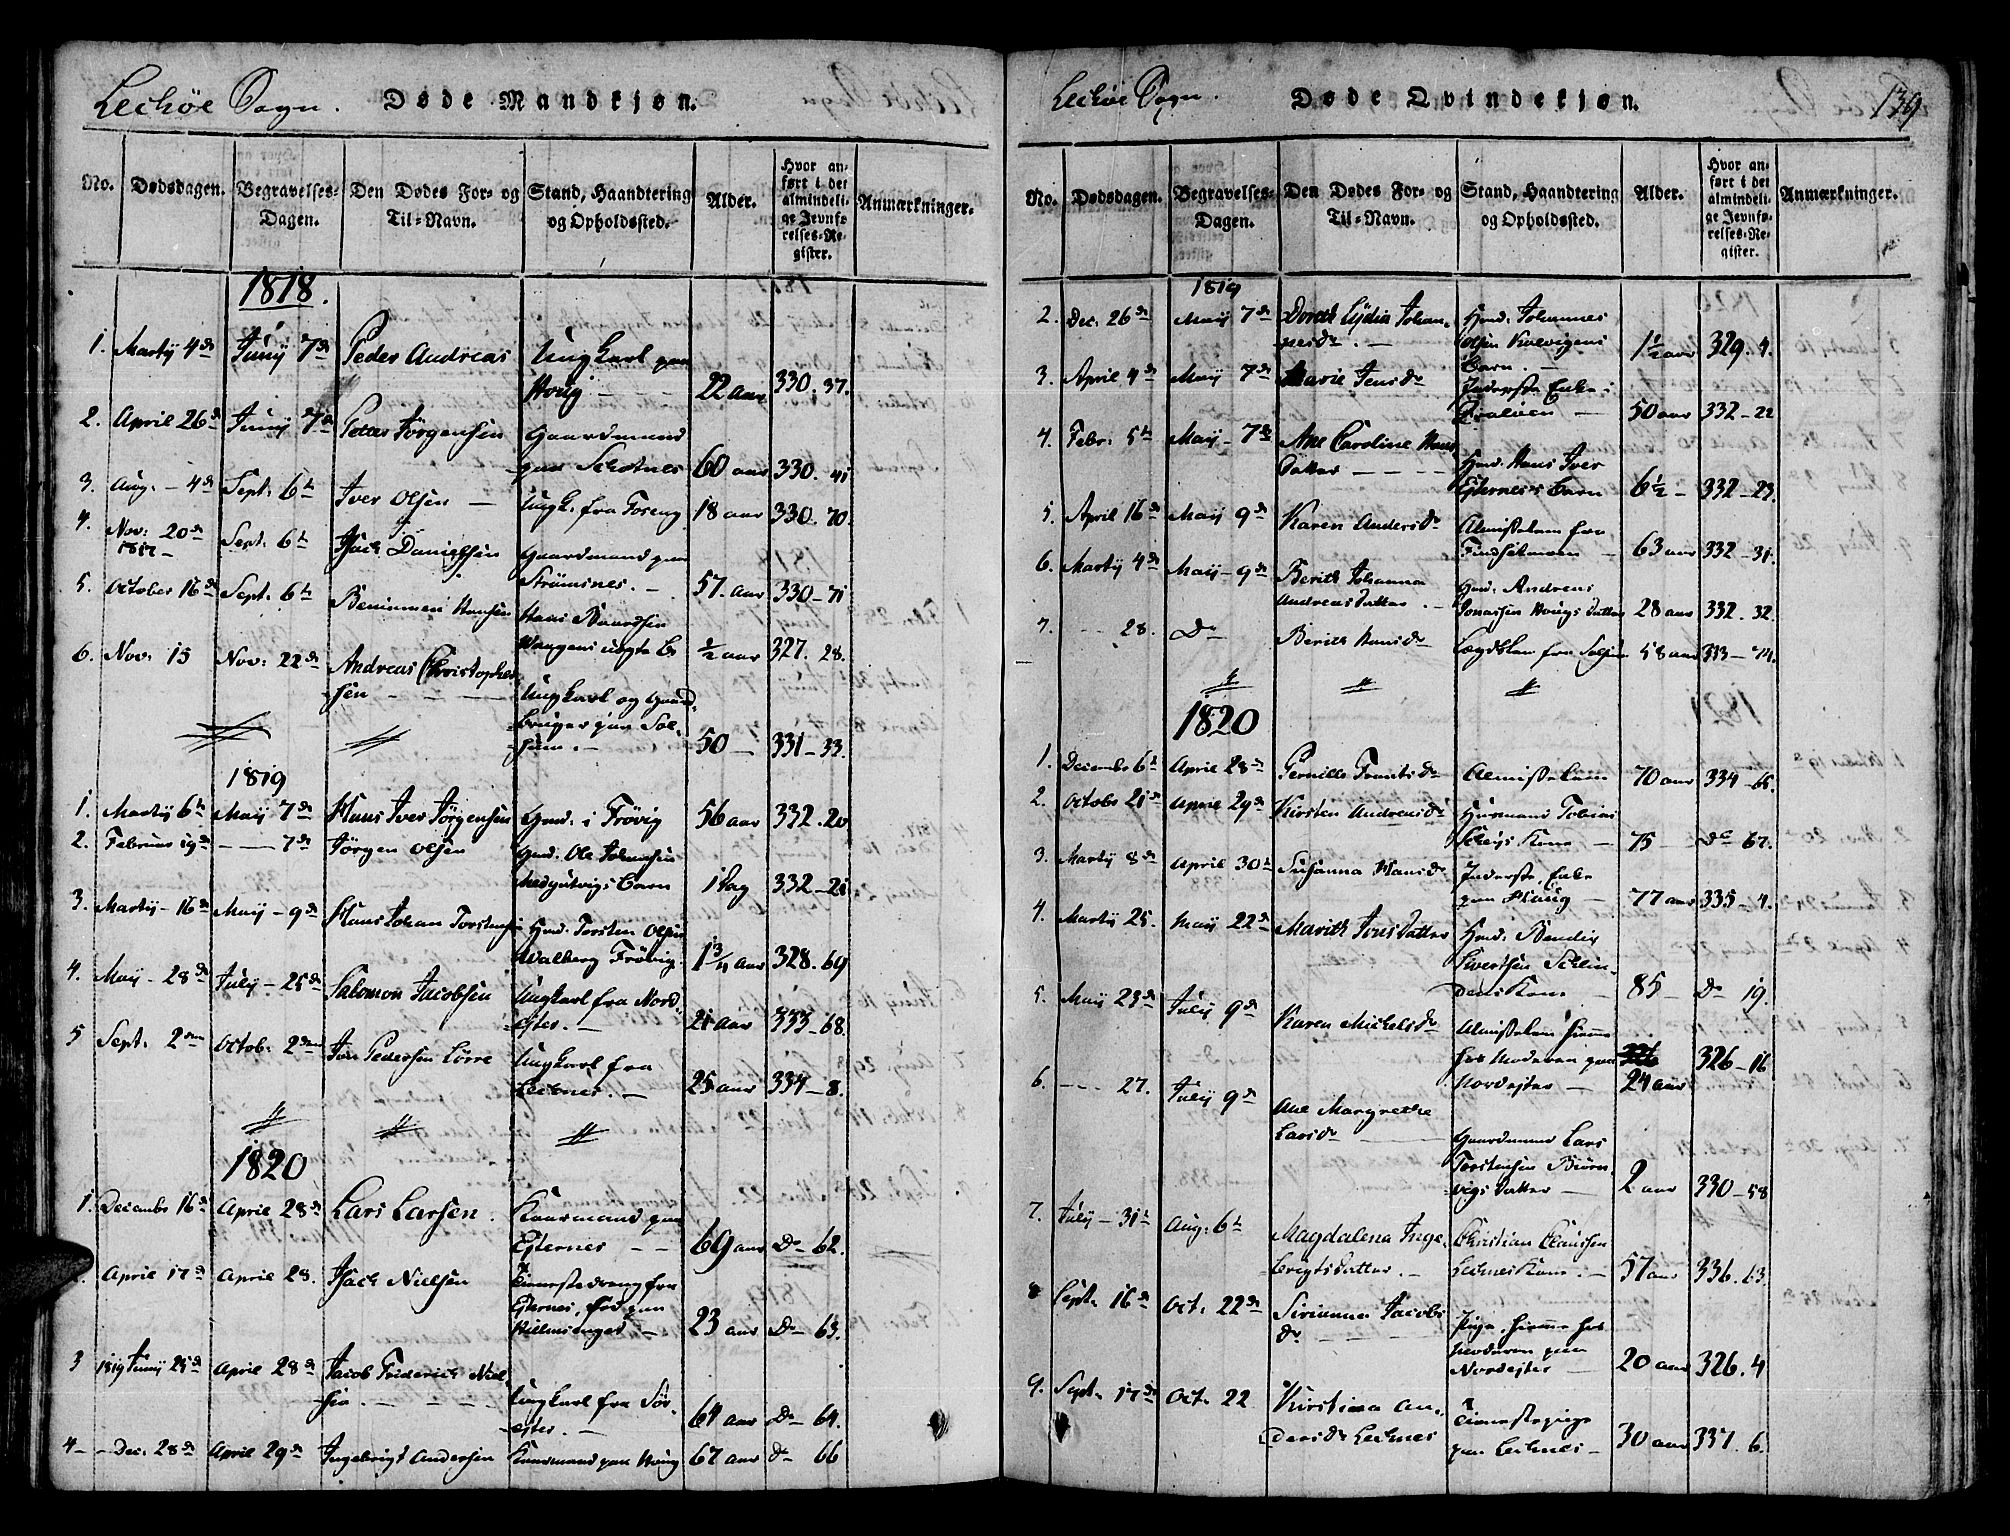 Leckøe Sogn. Døde Mandkjøn.
No. Dødsdagen. Begravelses-Dagen. Den Dødes For- og Til-Navn. Stand, Haandtering og Opholdssted. Alder. Hvor anført i det almindelige Jevnførelses-Register. Anmærkninger.
1818.
1. Martÿ 4de Junÿ 7de Peder Andreas Ungkarl paa
Houg 22 aar 330. 37.
2. April 26de Junÿ 7de Petter Jörgensen Gaardmand
paa 60 aar 330. 41
3. Aug. 4de Sept. 6te Iver Olsen Ungk. fra Foseng 18 aar 330. 70.
4. Nov. 20de 1817 Sept. 6te Isach Danielsen Gaardmand paa
Strömsnes. 57. aar 330-71
5. October 16de Sept. 6te Hansen Hans
uægte B. ½ aar 327. 28.
6. Nov. 15 Nov. 22de Andreas Christopher-
sen Ungkarl og Gaard-
bruger paa Sol-
sem. 50 331-33.
1819
1. Martÿ 6te Maÿ 7de Hans Iver Jörgensen Gmd. i Frövig 56 aar 332-20
2. Februar 19de 7de Jörgen Olsen Gmd. Ole Johansen
Barn 1 Dag 332-21
3. Martÿ 16de Maÿ 9de Hans Johan Torstensen Hmd. Torsten Olsen
Walberg Frövig 1¾ aar 328. 69
4. Maÿ 28de Julÿ 25de Salomon Jacobsen Ungkarl fra Nord-
ester. 21 aar 333-68.
5 Sept. 2den Octob. 2den Jon Pedersen Lörre Ungkarl fra
Leknes. 25 aar 334-8.
1820
1. Decembr 16de April 28de Lars Larsen. Kaarmand paa
Esternes 69 aar Do 62.
April 17de April 28. Isach Nielsen Tienestedreng fra
Esternes, föd paa
23 aar Do 63.
3 1819 Junÿ 25de April 28de Jacob Friderich Niel-
sen Ungkarl fra Sör-
ester. 64 aar Do 64.
4 Dec. 28de April 29de Ingebrigt Andersen Kaarmand paa Houg 67 aar Do 66
Leckøe Sogn. Døde Qvindekjøn. 139
No. Dødsdagen. Begravelses-Dagen. Den Dødes For- og Til-Navn. Stand, Haandtering og Opholdssted. Alder. Hvor anført i det almindelige Jevnførelses-Register. Anmærkninger.
1819
2. Dec. 26de Maÿ 7de Doreth Lÿdia Johan- Hmd. Johannes
nesdr. Olsen
Barn. 1½ aar 329. 4.
3. April 4de Maÿ 7de Marie Jensdr Inderste Enke
50 aar 332-22
4. Febr. 5te Maÿ 7de Ane Caroline Hans Hmd. Hans Iver
Datter Esternes's Barn 6½ 332-23.
5. April 16de Maÿ 9de Karen Andersdr Almisselem fra
63 aar 332-31.
6. Martÿ 4de Maÿ 9de Berith Johanna Gmd. Andreas
Andreasdatter. Jonassen Hougs Datter 28 aar 332. 32.
7. 28. Do Berith Hansdr Lægdslem fra Solsem 58 aar 333-74.
1820
1. Decembr 6te April 28de Pernille Almisselem 70 aar 334-65.
2. Octobr 21de April 29de Kirsten Andreasdr Huusmand Tobias
Kone 75 Do 67.
3. Martÿ 8de April 30te Susanna Hansdr Inderste, Enke
paa 77 aar 335-4.
4. Martÿ 25. Maÿ 22de Marith Jonsdatter Hmd. Bendix
Sivertsen
Kone 85 Do 19.
5. Maÿ 23de Julÿ 9de Karen Michelsdr Almisselem hiemme
hos Moderen paa 326-16
Nordester 24 aar
6. 27. Julÿ 9de Ane Margrethe
Larsdr Gaardmand Lars
Torstensen Biörn-
vigs Datter 2 aar 330-58
7. Julÿ 31te Aug. 6te Magdalena Inge- Christian Claussen
brigtsdatter. Leknes Kone. 57 aar 336. 63.
8 Sept. 16de Oct. 22de Sirianna Jacobs
dr Pige, hiemme hos
Moderen paa
Nordester 20 aar 326. 4
9. Sept. 17de Oct. 22 Kirstina An- Tienestepige
dersdr Leknes paa Leknes 30 aar 337. 6.